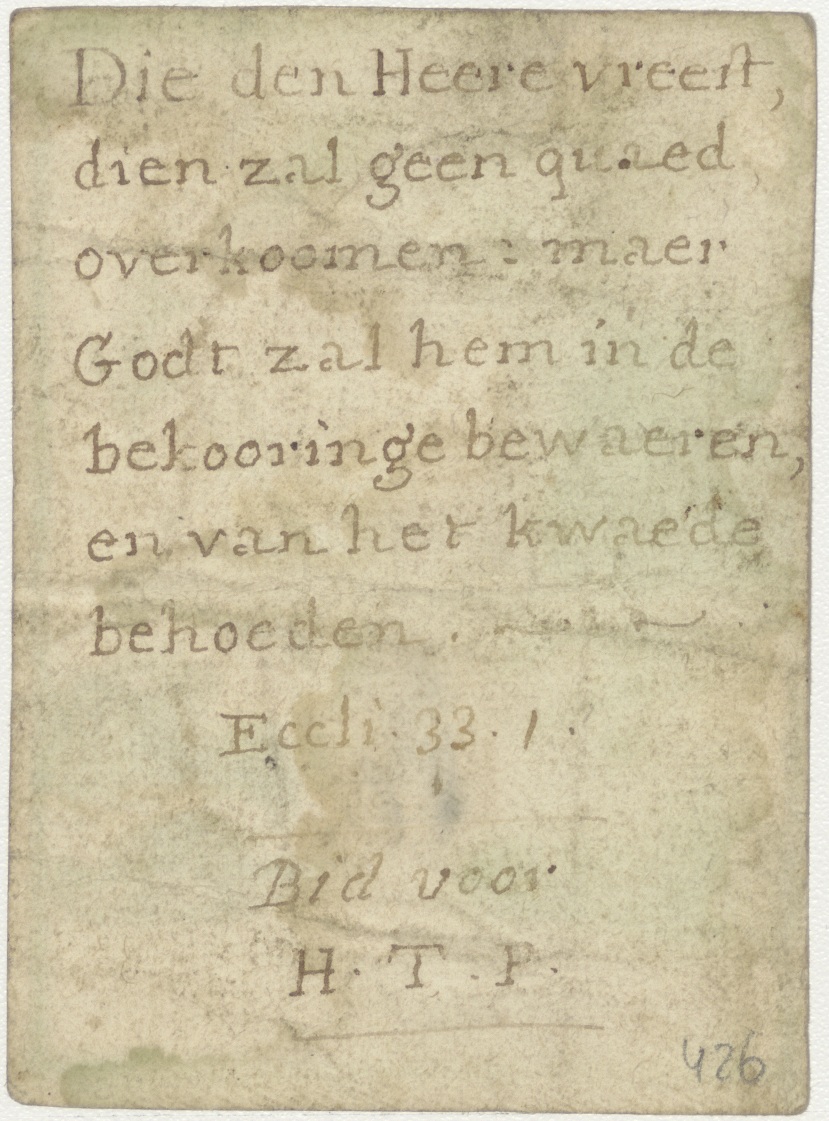 Die den Heere vreest,
dien zal geen quaed
overkoomen : maer
Godt zal hem in de
bekooringe bewaeren,
en van het kwaede
behoeden .
Eccli. 33. 1.
Bid voor
H. T. P.
426